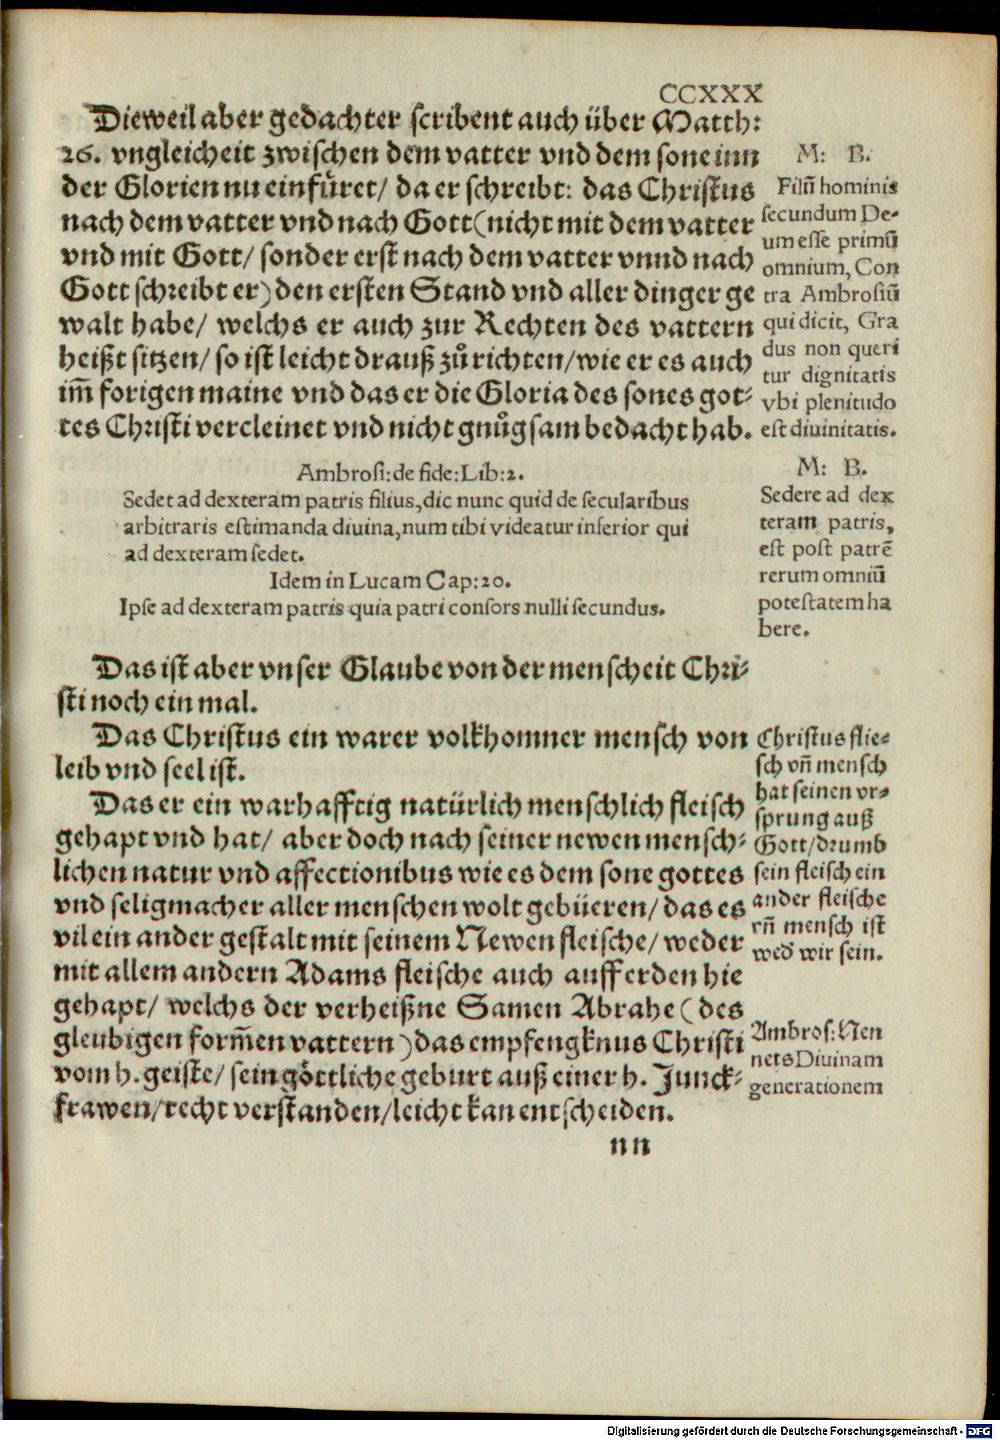 CCXXX
Dieweil aber gedachter scribent auch über Matth:
26. vngleicheit zwischen dem vatter vnd dem sone inn
der Glorien nu einfůret/ da er schreibt: das Christus
nach dem vatter vnd nach Gott (nicht mit dem vatter
vnd mit Gott/ sonder erst nach dem vatter vnnd nach
Gott schreibt er) den ersten Stand vnd aller dinger ge
walt habe/ welchs er auch zur Rechten des vattern
heißt sitzen/ so ist leicht drauß zů richten/ wie er es auch
im̃ forigen maine vnd das er die Gloria des sones got⸗
tes Christi vercleinet vnd nicht gnůgsam bedacht hab.
Ambrosi: de fide: Lib: 2.
Sedet ad dexteram patris filius, dic nunc quid de secularibus
arbitraris estimanda diuina, num tibi videatur inferior qui
ad dexteram sedet.
Idem in Lucam Cap: 20.
Ipse ad dexteram patris quia patri consors nulli secundus.
Das ist aber vnser Glaube von der menscheit Chri⸗
sti noch ein mal.
Das Christus ein warer volkhomner mensch von
leib vnd seel ist.
Das er ein warhafftig natürlich menschlich fleisch
gehapt vnd hat/ aber doch nach seiner newen mensch⸗
lichen natur vnd affectionibus wie es dem sone gottes
vnd seligmacher aller menschen wolt gebüeren/ das es
vil ein ander gestalt mit seinem Newen fleische/ weder
mit allem andern Adams fleische auch auff erden hie
gehapt/ welchs der verheißne Samen Abrahe (des
gleubigen form̃en vattern) das empfengknus Christi
vom h. geiste/ sein gőttliche geburt auß einer h. Junck⸗
frawen/ recht verstanden/ leicht kan entscheiden.
nn
M: B.
Filiū hominis
secundum De⸗
um esse primū
omnium, Con
tra Ambrosiū
qui dicit, Gra
dus non queri
tur dignitatis
vbi plenitudo
est diuinitatis.
M: B.
Sedere ad dex
teram patris,
est post patrē
rerum omniū
potestatem ha
bere.
Christus flie⸗
sch vñ mensch
hat seinen vr⸗
sprung auß
Gott/ drumb
sein fleisch ein
ander fleische
vñ mensch ist
wed̃ wir sein.
Ambros: Nen
nets Diuinam
generationem
Digitalisierung gefördert durch die Deutsche Forschungsgemeinschaft - DFG